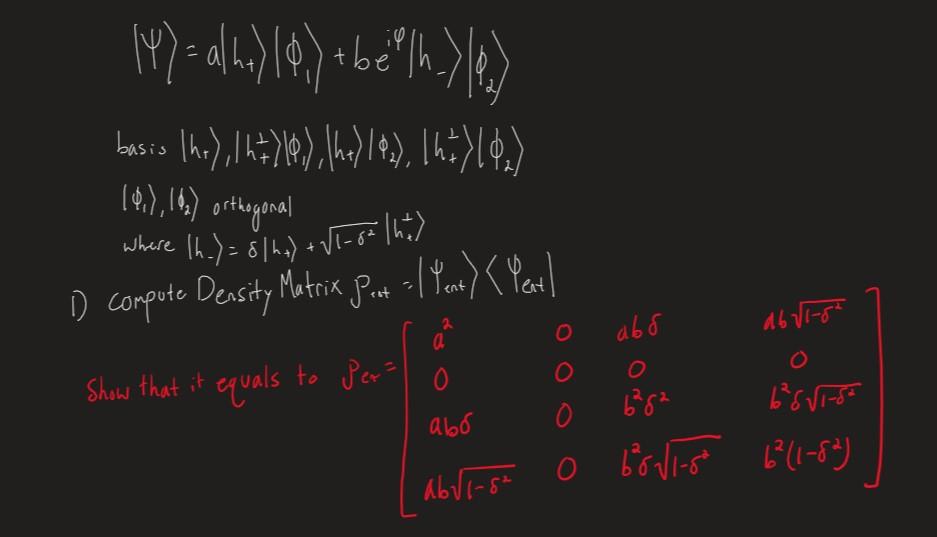 |Ψ⟩ = a|h₊⟩|ϕ₁⟩ + be^{iφ}|h₋⟩|ϕ₂⟩
basis |h₊⟩, |h₊^⊥⟩|ϕ₁⟩, |h₊⟩|ϕ₂⟩, |h₊^⊥⟩|ϕ₂⟩
|ϕ₁⟩, |ϕ₂⟩ orthogonal
where |h₋⟩ = δ|h₊⟩ + √(1-δ²) |h₊^⊥⟩
1) compute Density Matrix ρ_ent = |Ψ_ent⟩⟨Ψ_ent|
Show that it equals to ρ_en =
a² 0 abδ ab√(1-δ²)
0 0 0 0
abδ 0 b²δ² b²δ√(1-δ²)
ab√(1-δ²) 0 b²δ√(1-δ²) b²(1-δ²)